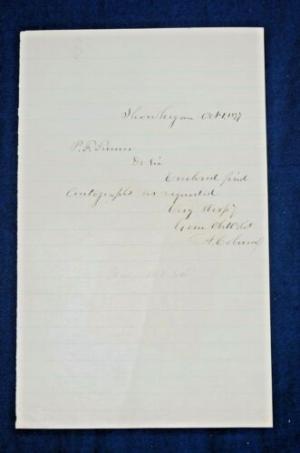 Skowhegan Oct 1, 1877
P. F.
Dr Sir
Enclosed find
Autographs as requested
Very Resp'y
Your Obt Svt
A. Coburn